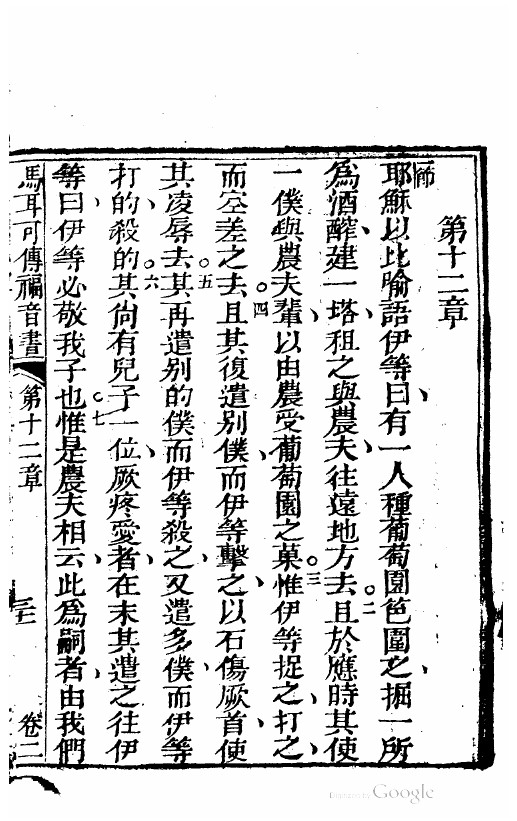 第十二章
一節
耶穌以比喻語伊等曰有一人種葡萄園笆圍之掘一所
為酒醡建一塔租之與農夫往遠地方去二且於應時其使
一僕與農夫輩以由農受葡萄園之菓三惟伊等捉之打之
而空差之去四且其復遣别僕而伊等擊之以石傷厥首使
其凌辱去五其再遣别的僕而伊等殺之又遣多僕而伊等
打的殺的六其尚有兒子一位厥疼愛者在末其遣之往伊
等曰伊等必敬我子也七惟是農夫相云此為嗣者由我們
馬耳可傳福音書 第十二章 卷二
Digitized by Google